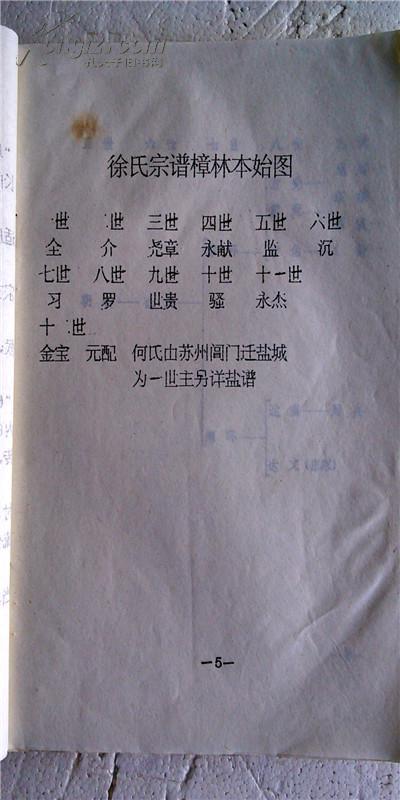 徐氏宗谱樟林本始图
一世 二世 三世 四世 五世 六世
全 介 尧章 永献 监 沉
七世 八世 九世 十世 十一世
习 罗 世贵 骚 永杰
十二世
金宝 元配 何氏由苏州阊门迁盐城
为一世主另详盐谱
—5—